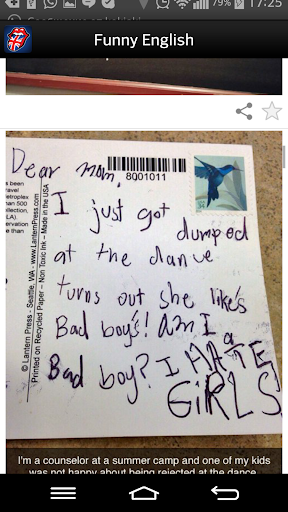 17:25
Funny English
Dear Mom,
8001011
I just got
dumped
at the dance
turns out she like's
Bad boy's! Am I a
Bad boy? I HATE
GIRLS
© Lantern Press - Seattle, WA - www.LanternPress.com
Printed on Recycled Paper – Non Toxic Ink – Made in the USA
s been
etroplex
han 500
llection,
LA).
ervation
e than
I'm a counselor at a summer camp and one of my kids
was not happy about being rejected at the dance